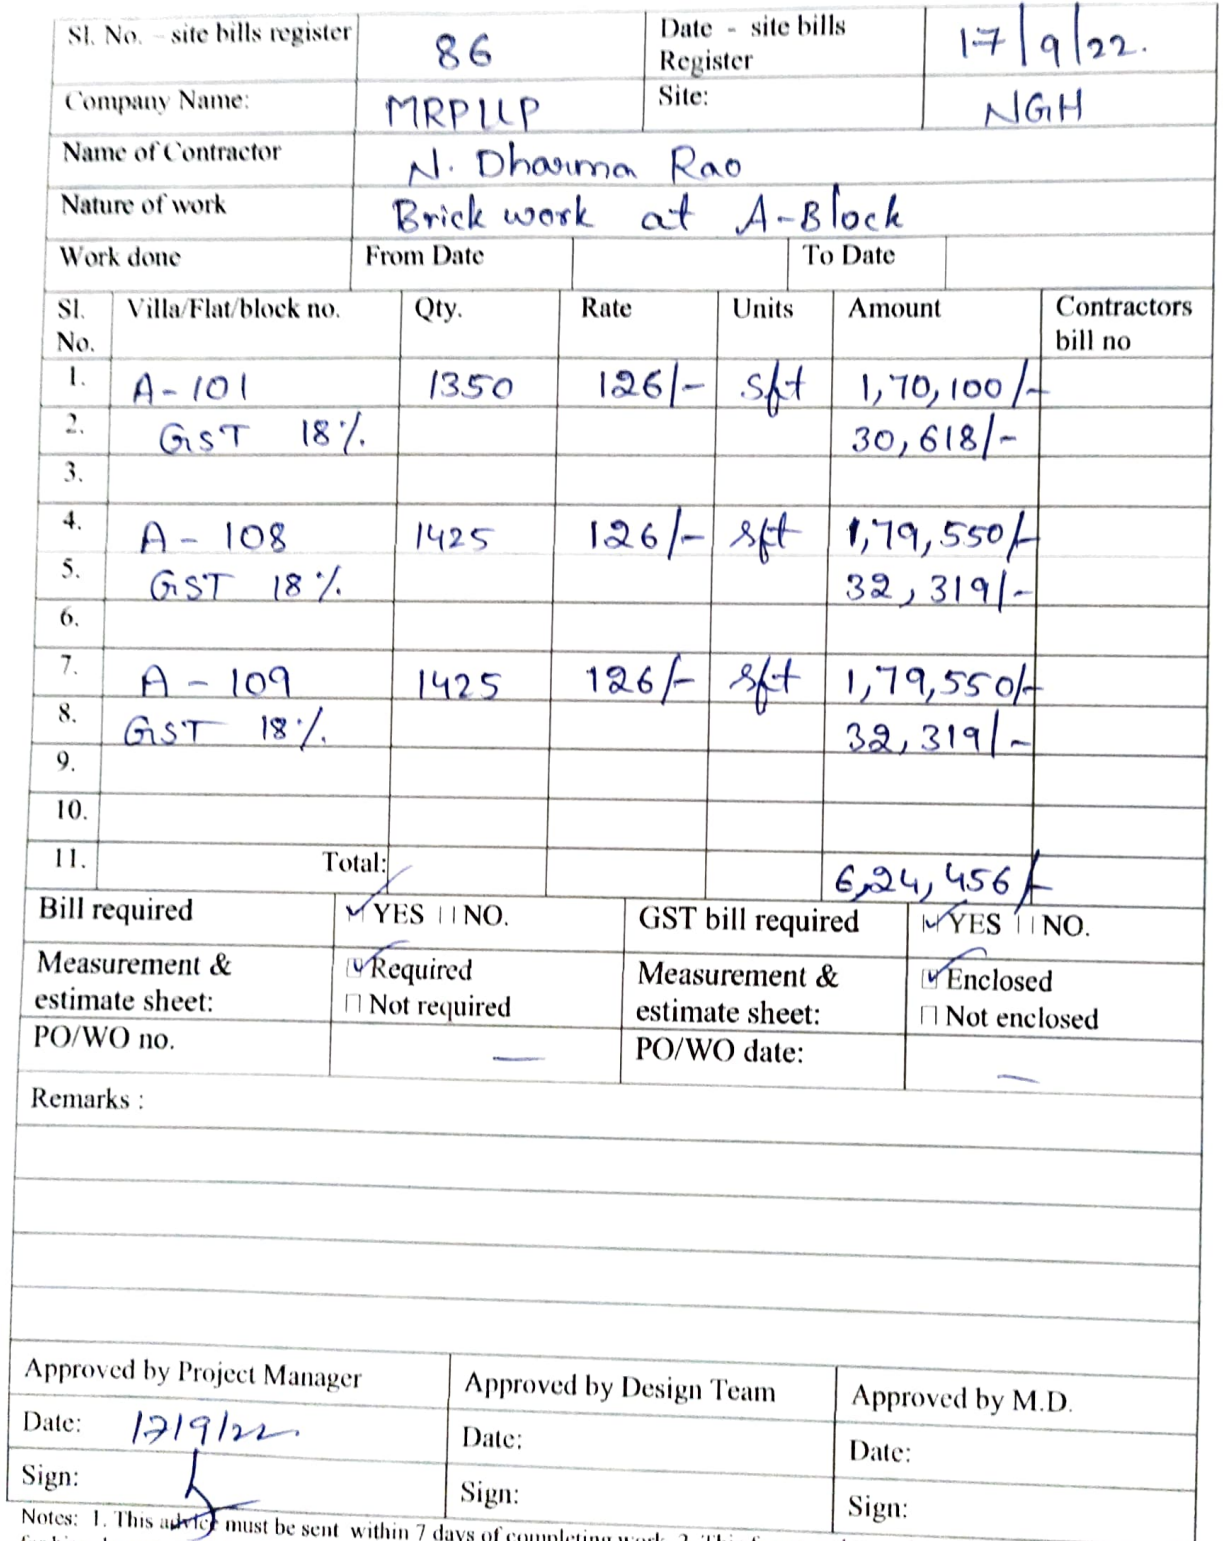 Sl. No. – site bills register 86 Date - site bills Register 17/9/22.
Company Name: MRPLLP Site: NGH
Name of Contractor N. Dharma Rao
Nature of work Brick work at A-Block
Work done From Date To Date
Sl. No. Villa/Flat/block no. Qty. Rate Units Amount Contractors bill no
1. A-101 1350 126/- sft 1,70,100/-
2. GST 18% 30,618/-
3.
4. A-108 1425 126/- sft 1,79,550/-
5. GST 18% 32,319/-
6.
7. A-109 1425 126/- sft 1,79,550/-
8. GST 18% 32,319/-
9.
10.
11. Total: 6,24,456/-
Bill required ☑ YES □ NO. GST bill required ☑ YES □ NO.
Measurement & estimate sheet: ☑ Required □ Not required Measurement & estimate sheet: ☑ Enclosed □ Not enclosed
PO/WO no. — PO/WO date: —
Remarks :
Approved by Project Manager Approved by Design Team Approved by M.D.
Date: 17/9/22. Date: Date:
Sign: Sign: Sign:
Notes: 1. This advice must be sent within 7 days of completing work. 2. This